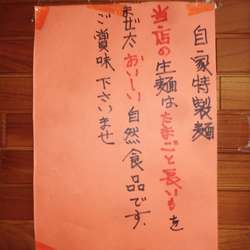 自家特製麺
当店の生麺はたまごと長いもを
まぜた おいしい自然食品です。
ご賞味下さいませ